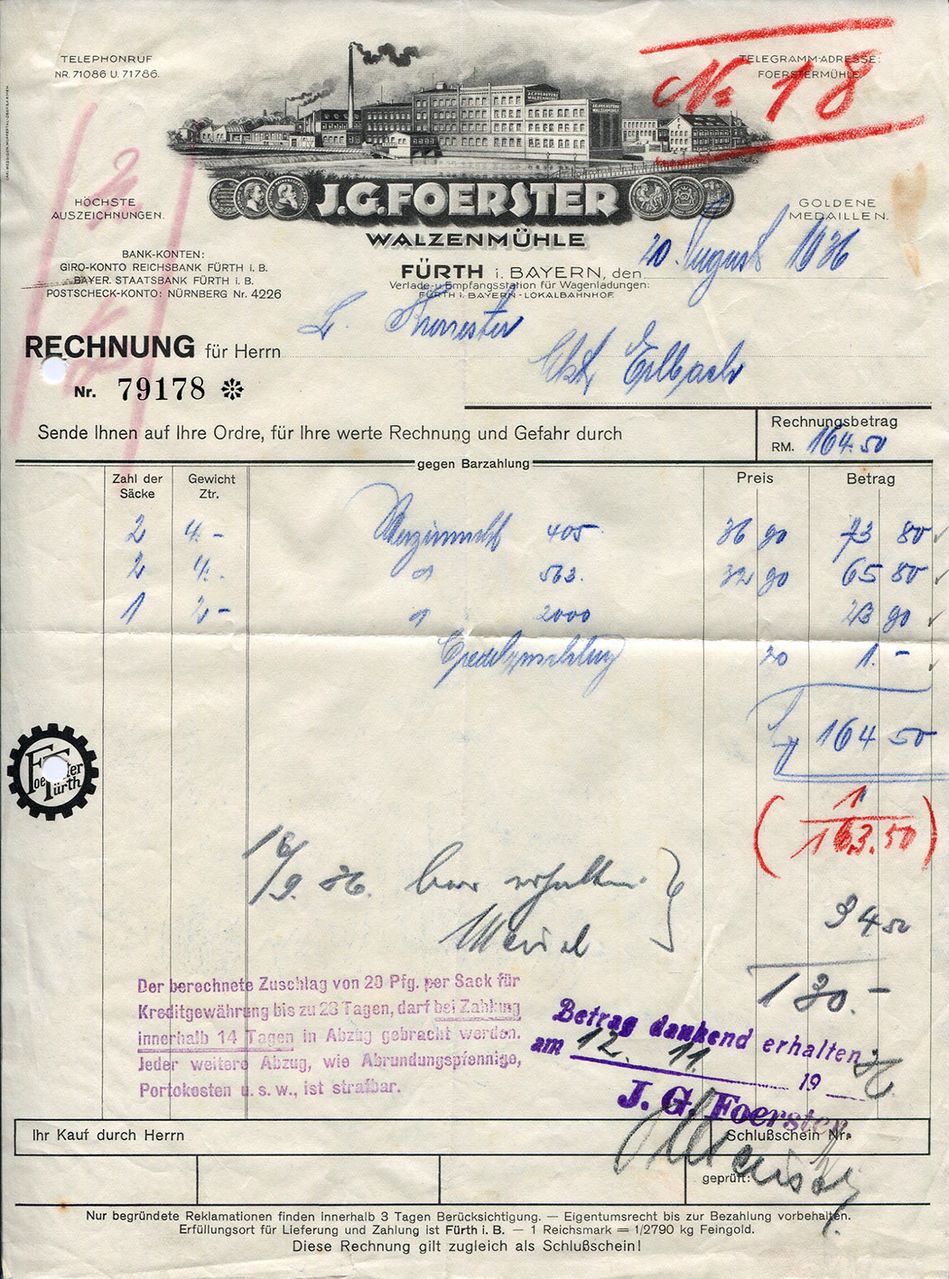 TELEPHONRUF
NR. 71086 U. 71786.
TELEGRAMM-ADRESSE:
FOERSTERMÜHLE
No 18
J.G. FOERSTER
WALZENMÜHLE
HÖCHSTE
AUSZEICHNUNGEN.
GOLDENE
MEDAILLEN.
BANK-KONTEN:
GIRO-KONTO REICHSBANK FÜRTH i. B.
BAYER. STAATSBANK FÜRTH i. B.
POSTSCHECK-KONTO: NÜRNBERG Nr. 4226
FÜRTH i. BAYERN, den 20. August 1936
Verlade- u. Empfangsstation für Wagenladungen:
FÜRTH i. BAYERN - LOKALBAHNHOF.
RECHNUNG für Herrn
Nr. 79178
Sende Ihnen auf Ihre Ordre, für Ihre werte Rechnung und Gefahr durch
Rechnungsbetrag
RM. 164.50
gegen Barzahlung
Zahl der Säcke Gewicht Ztr. Preis Betrag
2 4.- 405 36 90 73 80
2 4.- 563. 32 90 65 80
1 2.- 2000 23 90
20 1.-
164 50
Foerster Fürth
1
163.50
16/9. 36. bar erhalten
94 50
130 -
Der berechnete Zuschlag von 20 Pfg. per Sack für
Kreditgewährung bis zu 28 Tagen, darf bei Zahlung
innerhalb 14 Tagen in Abzug gebracht werden.
Jeder weitere Abzug, wie Abrundungspfennige,
Portokosten u. s. w., ist strafbar.
Betrag dankend erhalten
am 12. 11. 1936
J. G. Foerster
Ihr Kauf durch Herrn
Schlußschein Nr.
geprüft:
Nur begründete Reklamationen finden innerhalb 3 Tagen Berücksichtigung. — Eigentumsrecht bis zur Bezahlung vorbehalten.
Erfüllungsort für Lieferung und Zahlung ist Fürth i. B. — 1 Reichsmark = 1/2790 kg Feingold.
Diese Rechnung gilt zugleich als Schlußschein!